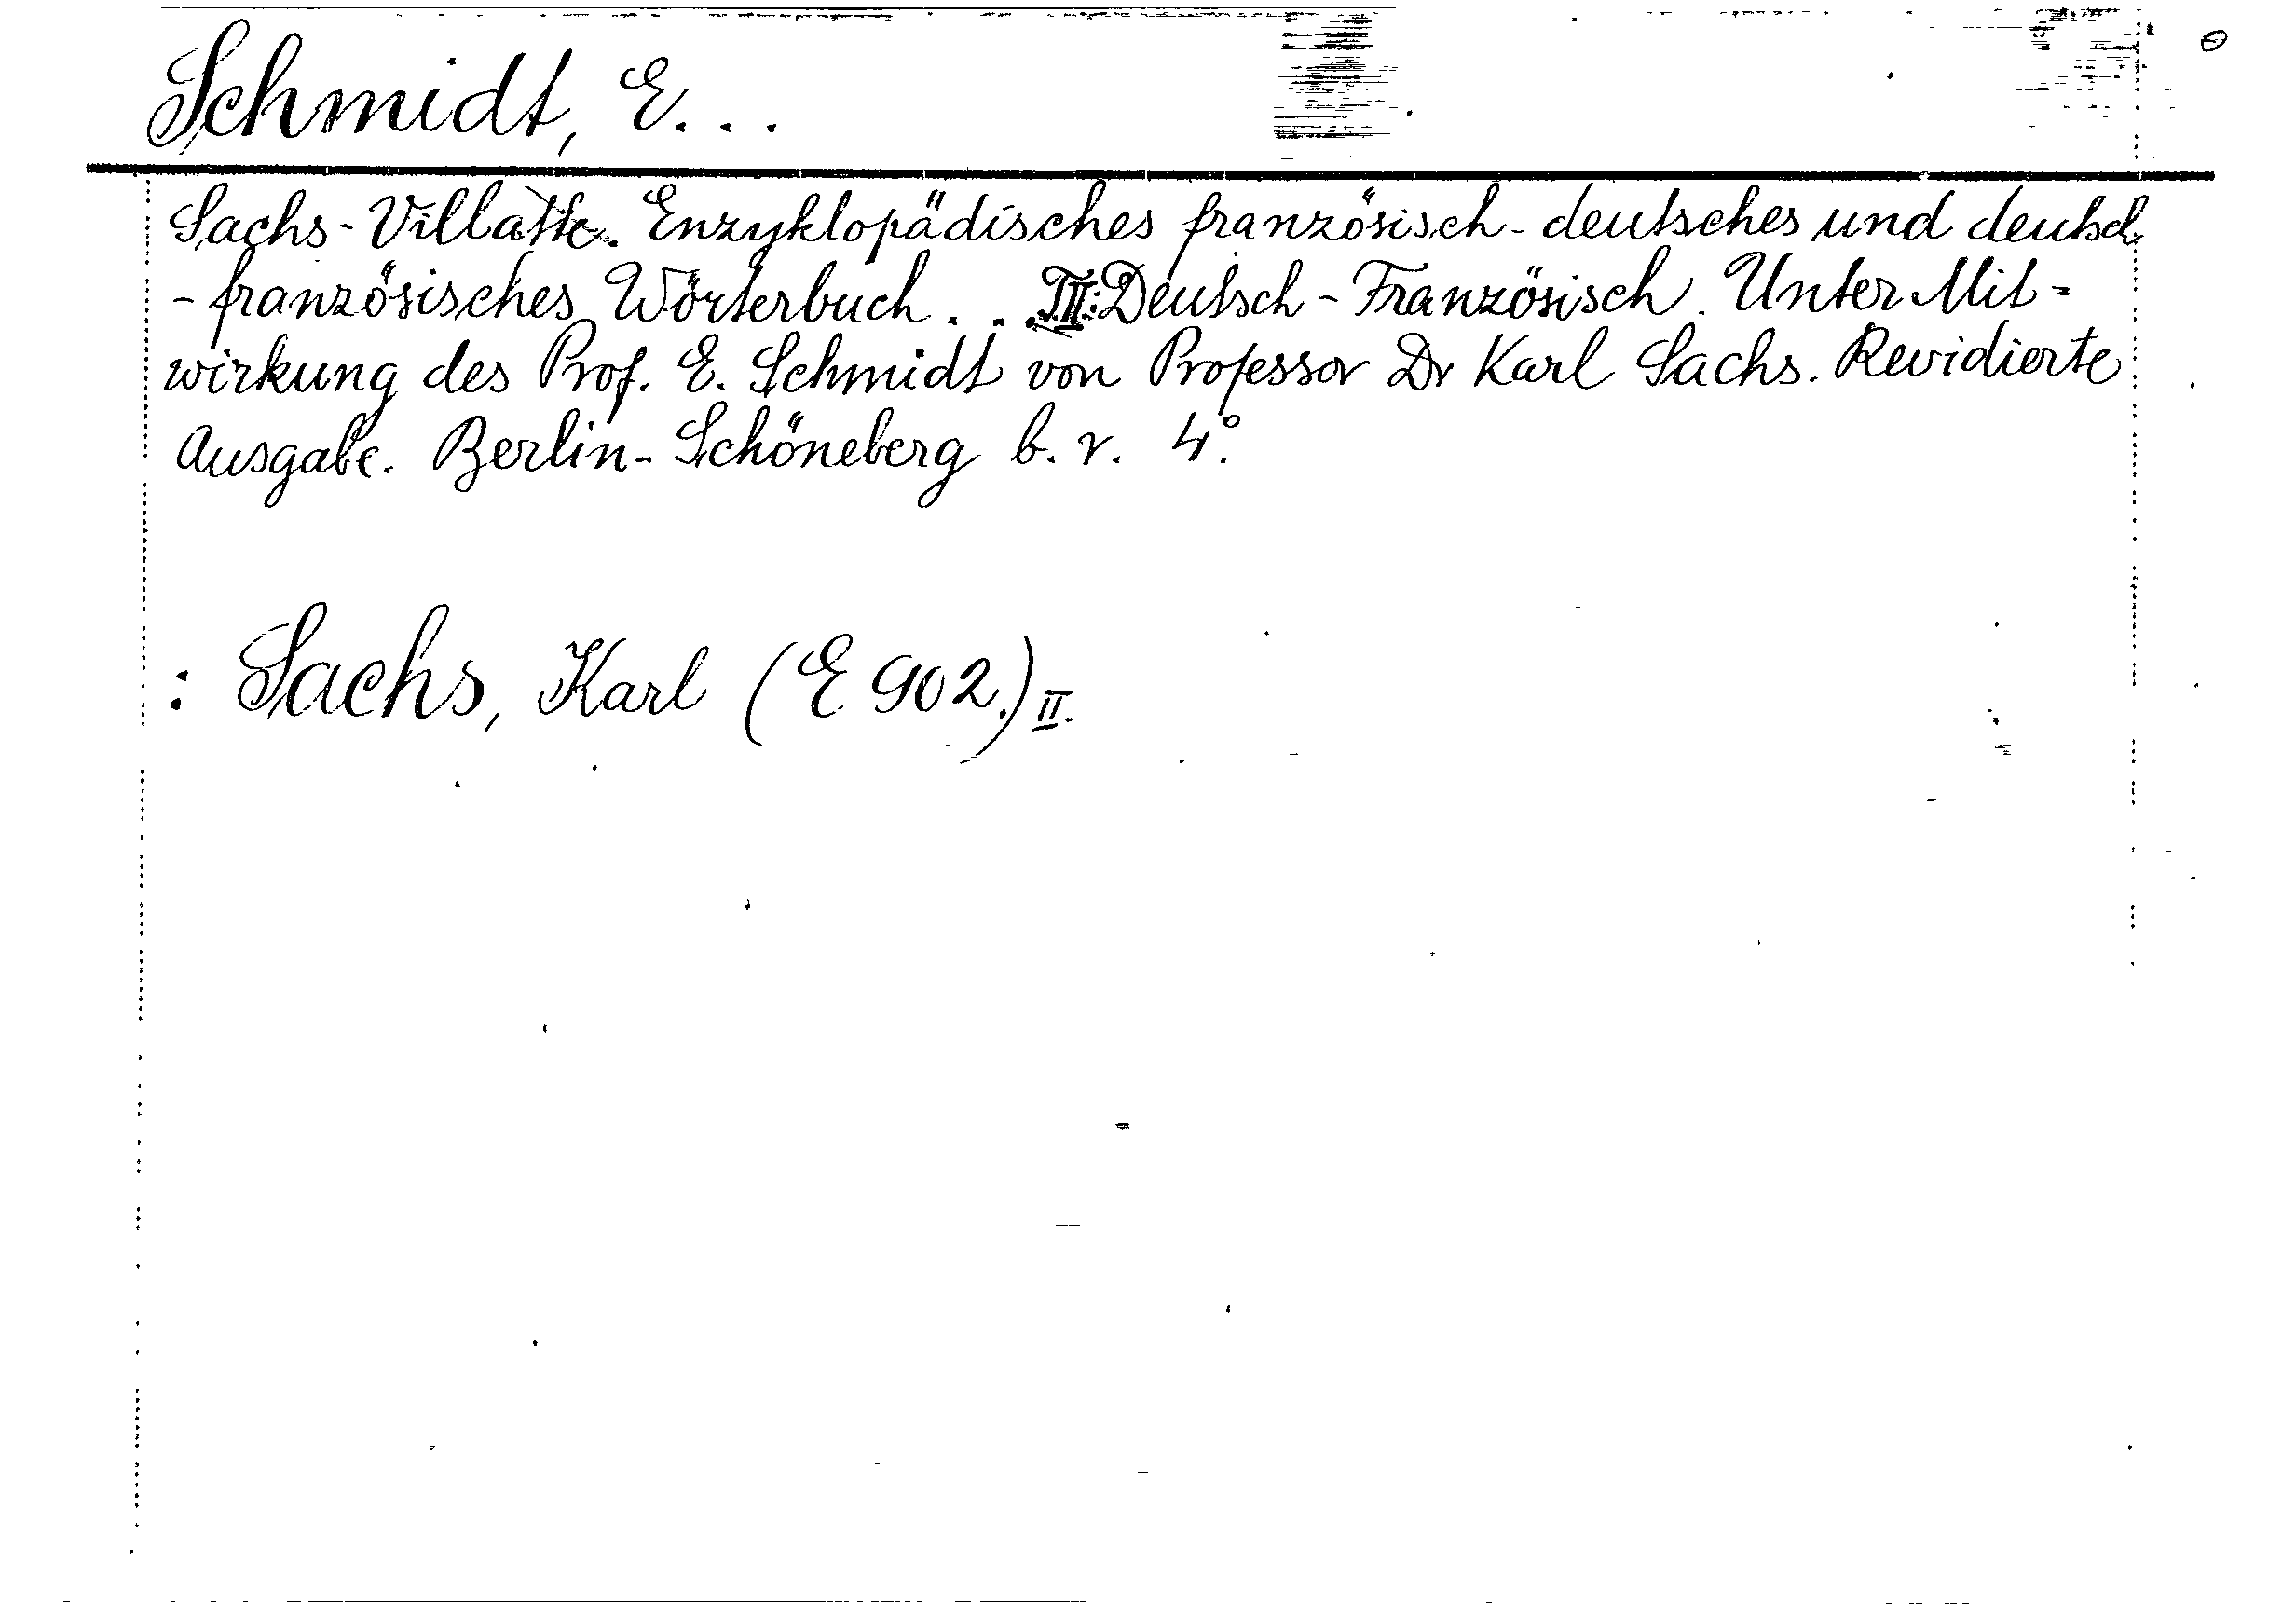 Schmidt, E...
Sachs-Villatte. Enzyklopädisches französisch-deutsches und deutsch
-französisches Wörterbuch... T.II: Deutsch-Französisch. Unter Mit-
wirkung des Prof. E. Schmidt von Professor Dr Karl Sachs. Revidierte
Ausgabe. Berlin-Schöneberg b. r. 4°.
: Sachs, Karl (E 902.) II.